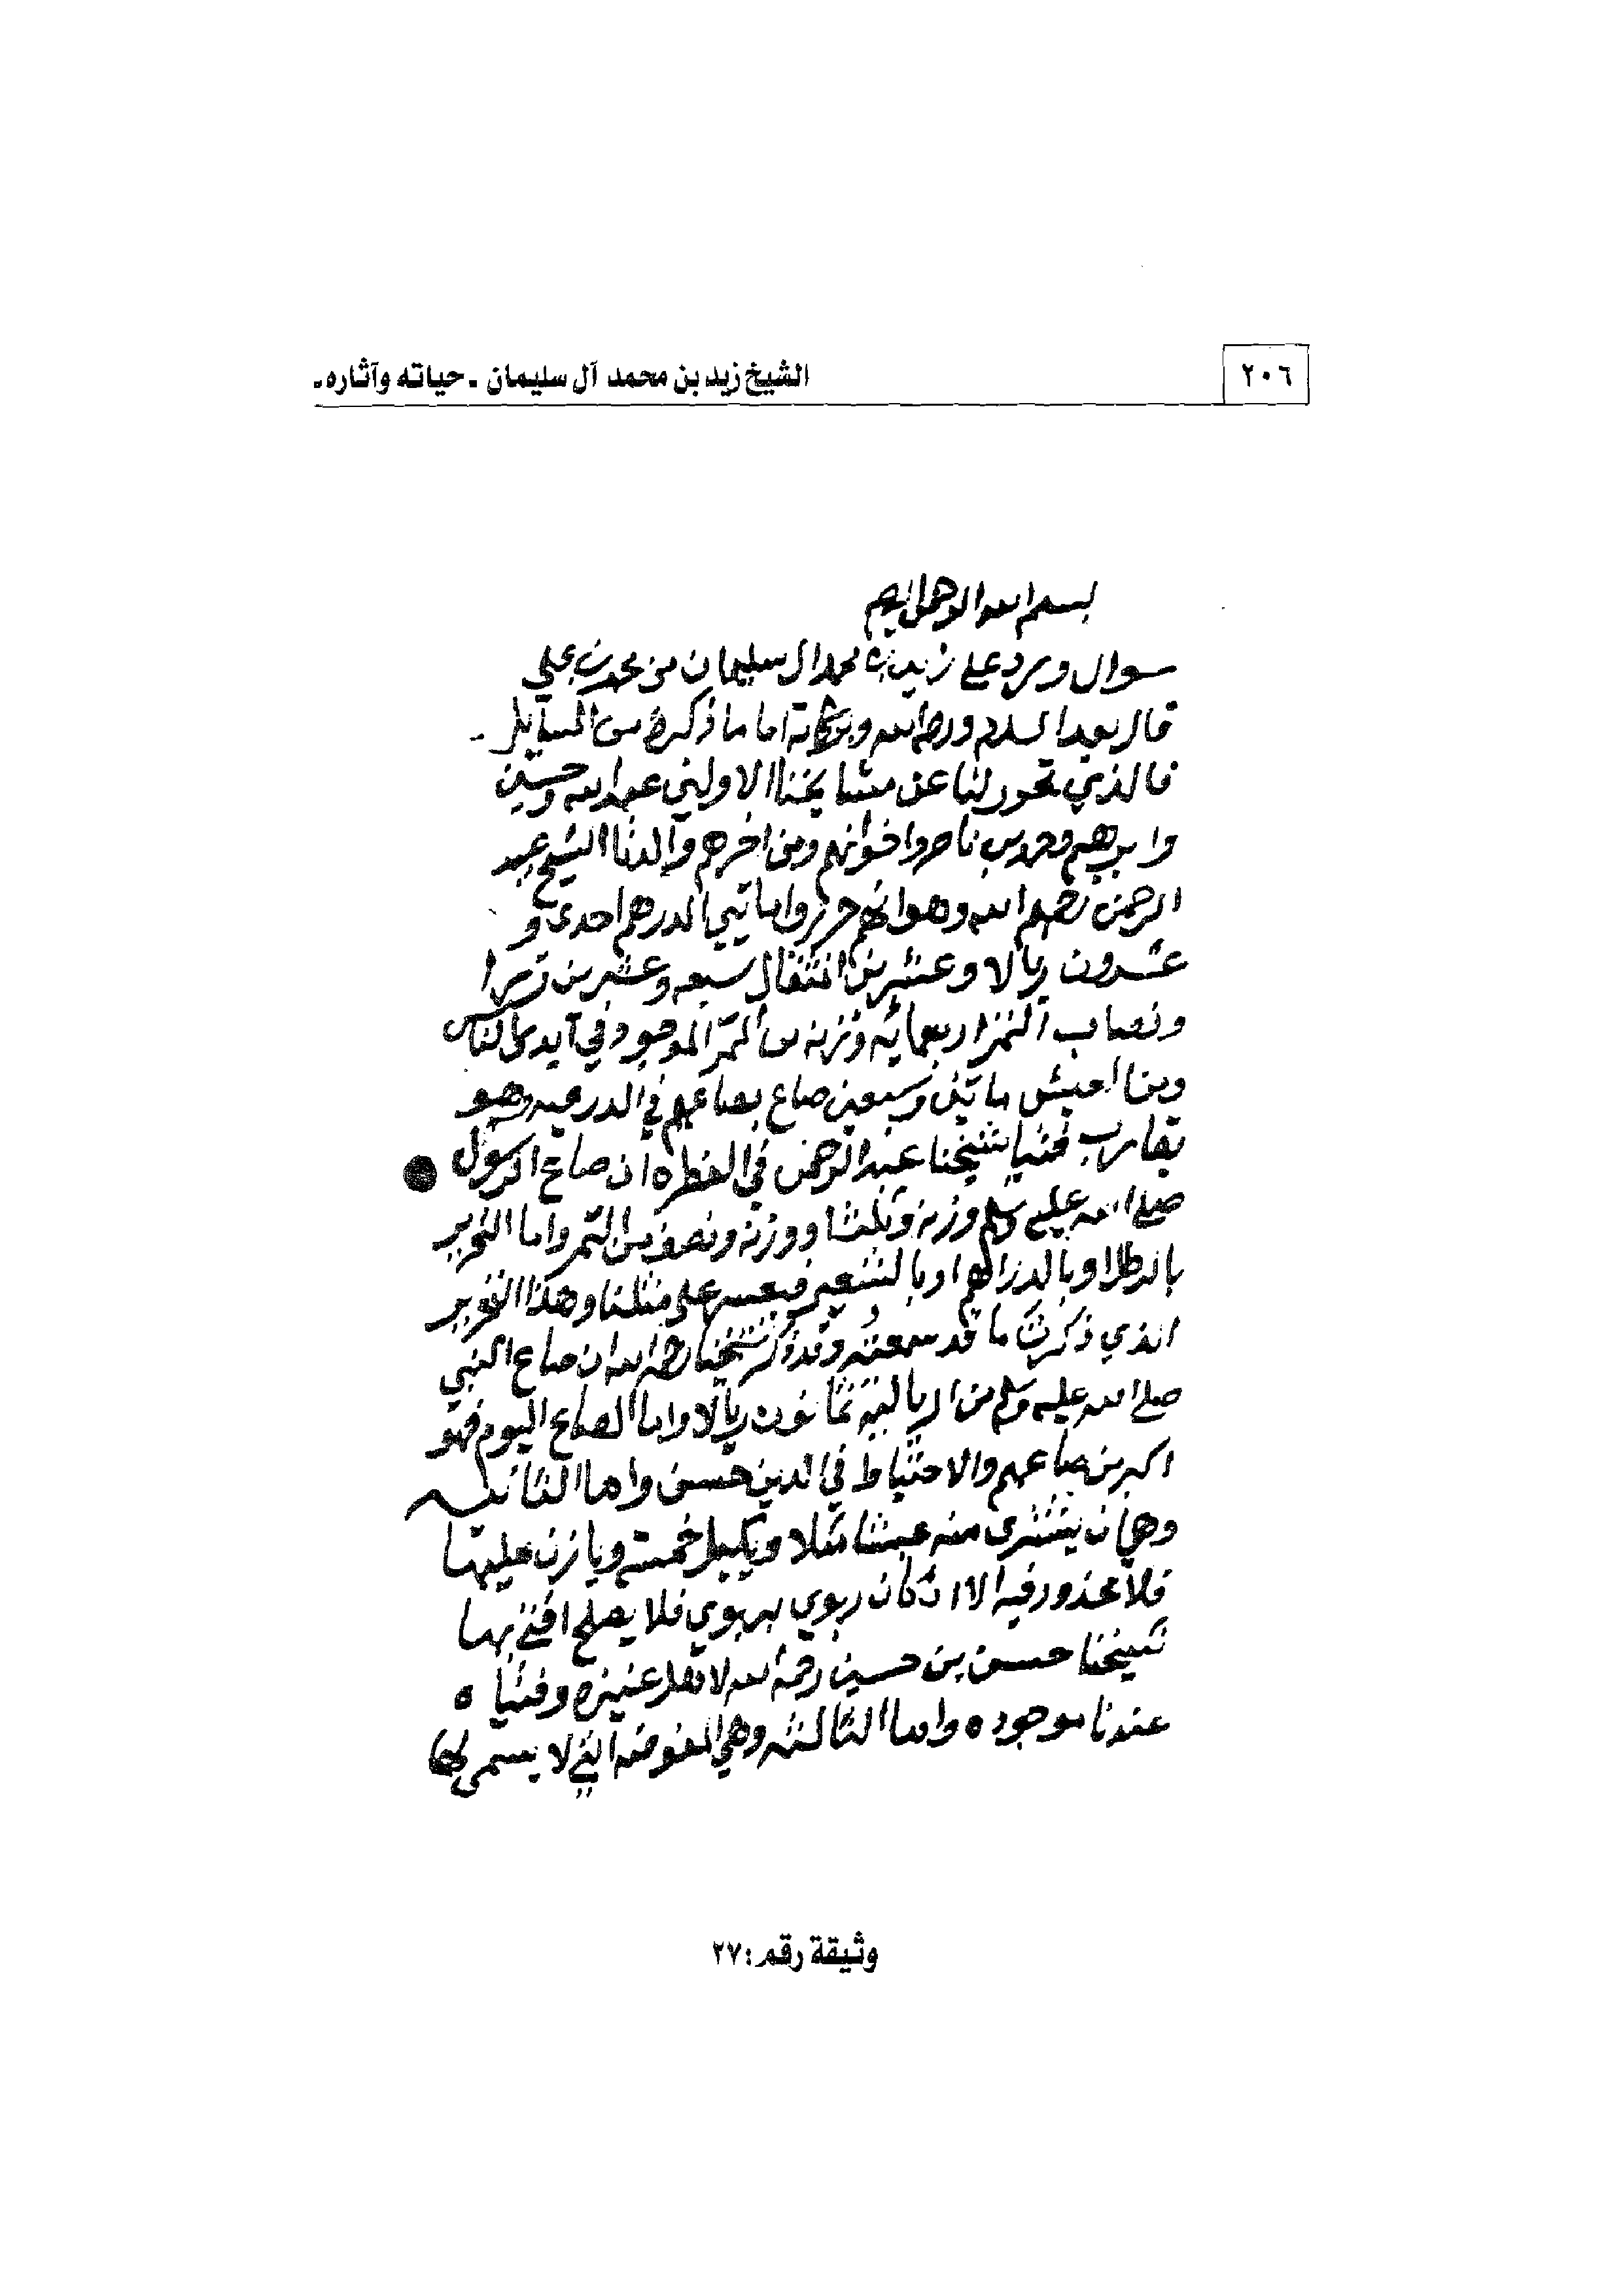 ٢٠٦
الشيخ زيد بن محمد آل سليمان ـ حياته وآثاره ـ
بسم الله الرحمن الرحيم
سوال ورد على زيد بن محمد ال سليمان من محمد بن علي
قال بعد السلام ورحمة الله وبركاته اما ما ذكرة من المسايل
فالذي تحرر لنا عن مشايخنا الاولين عبد الله وحسين
وابرهيم وحمد بن ناصر واخوانهم ومن اخرهم والدنا الشيخ عبد
الرحمن رحمهم الله وهو انهم حرروا مايتي الدرهم احدى و
عشرون ريالا وعشرين المثقال سبعه وعشرين
ونصاب التمر اربعمائه وزنه من التمر الموجود في آيدي الناس
ومن العيش مايتين وسبعين صاع بصاعهم في الدرعيه وهو
يقارب فتيا شيخنا عبد الرحمن في الفطره ان صاع الرسول
صلى الله عليه وسلم وزنه وثلث او وزنه ونصف من التمر واما التحرير
بالرطل او بالدراهم او بالشعير فيعسر على مثلنا وهذا التحرير
الذي ذكرت ما قد سمعته وقد ذكر شيخنا رحمه الله ان صاع النبي
صلى الله عليه وسلم من الريالية ثمانون ريالا واما الصاع اليوم فهو
اكبر من صاعهم والاحتياط في الدين حسن واما الثانيه
وهي ان يشترى منه عيشا مثلا ويكيل خمسة ويازن عليها
فلا محذور فيه الا ان كان ربوي بربوي فلا يصلح افتى بها
شيخنا حسن بن حسين رحمه الله لاهل عنيزه وفتياه
عندنا موجوده واما الثالثه وهي المفوضه التي لا يسمى لها
وثيقة رقم: ٢٧